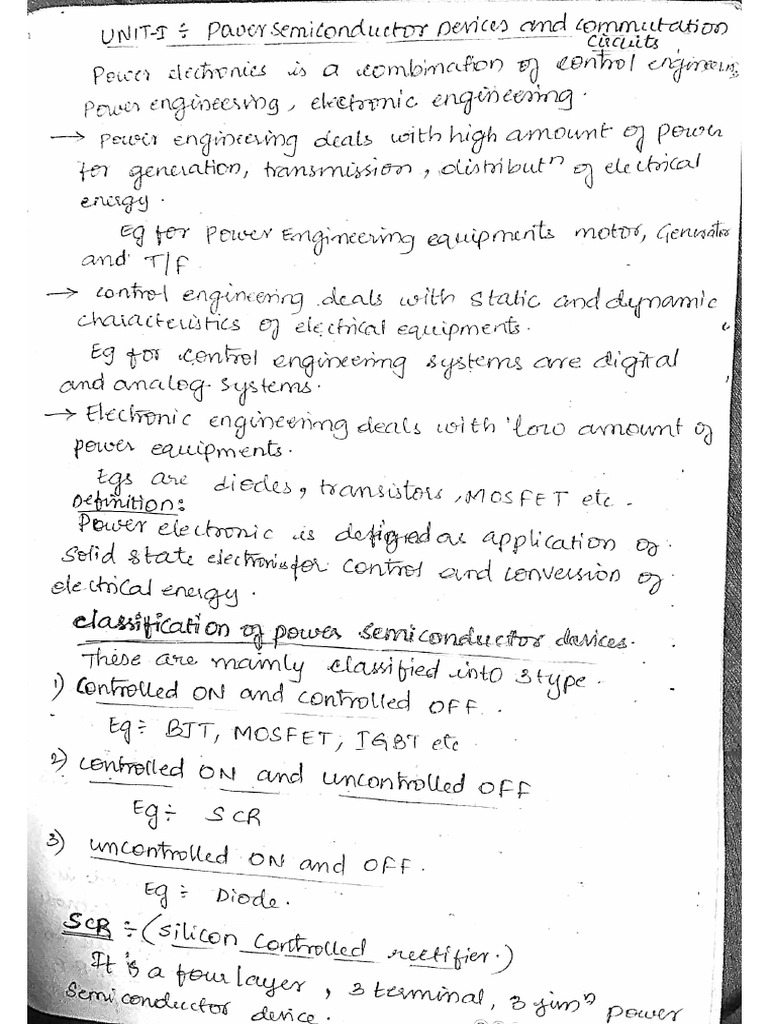 UNIT-I ÷ Power semiconductor Devices and commutation
circuits.
Power electronics is a combination of control engineering,
Power engineering, electronic engineering.
→ Power engineering deals with high amount of power
for generation, transmission, distributⁿ of electrical
energy.
Eg for Power Engineering equipments motor, Generator
and T/F
→ control engineering deals with static and dynamic
characteristics of electrical equipments.
Eg for control engineering systems are digital
and analog systems.
→ Electronic engineering deals with low amount of
power equipments.
Egs are diodes, transistors, MOSFET etc.
Definition:
Power electronic is defined as application of
solid state electronics for control and conversion of
electrical energy.
classification of power semiconductor devices.
These are mainly classified into 3 type.
1) controlled ON and controlled OFF.
Eg ÷ BJT, MOSFET, IGBT etc
2) controlled ON and uncontrolled OFF
Eg ÷ SCR
3) uncontrolled ON and OFF.
Eg ÷ Diode.
SCR ÷ (silicon controlled rectifier.)
It is a four layer, 3 terminal, 3 junⁿ power
semiconductor device.